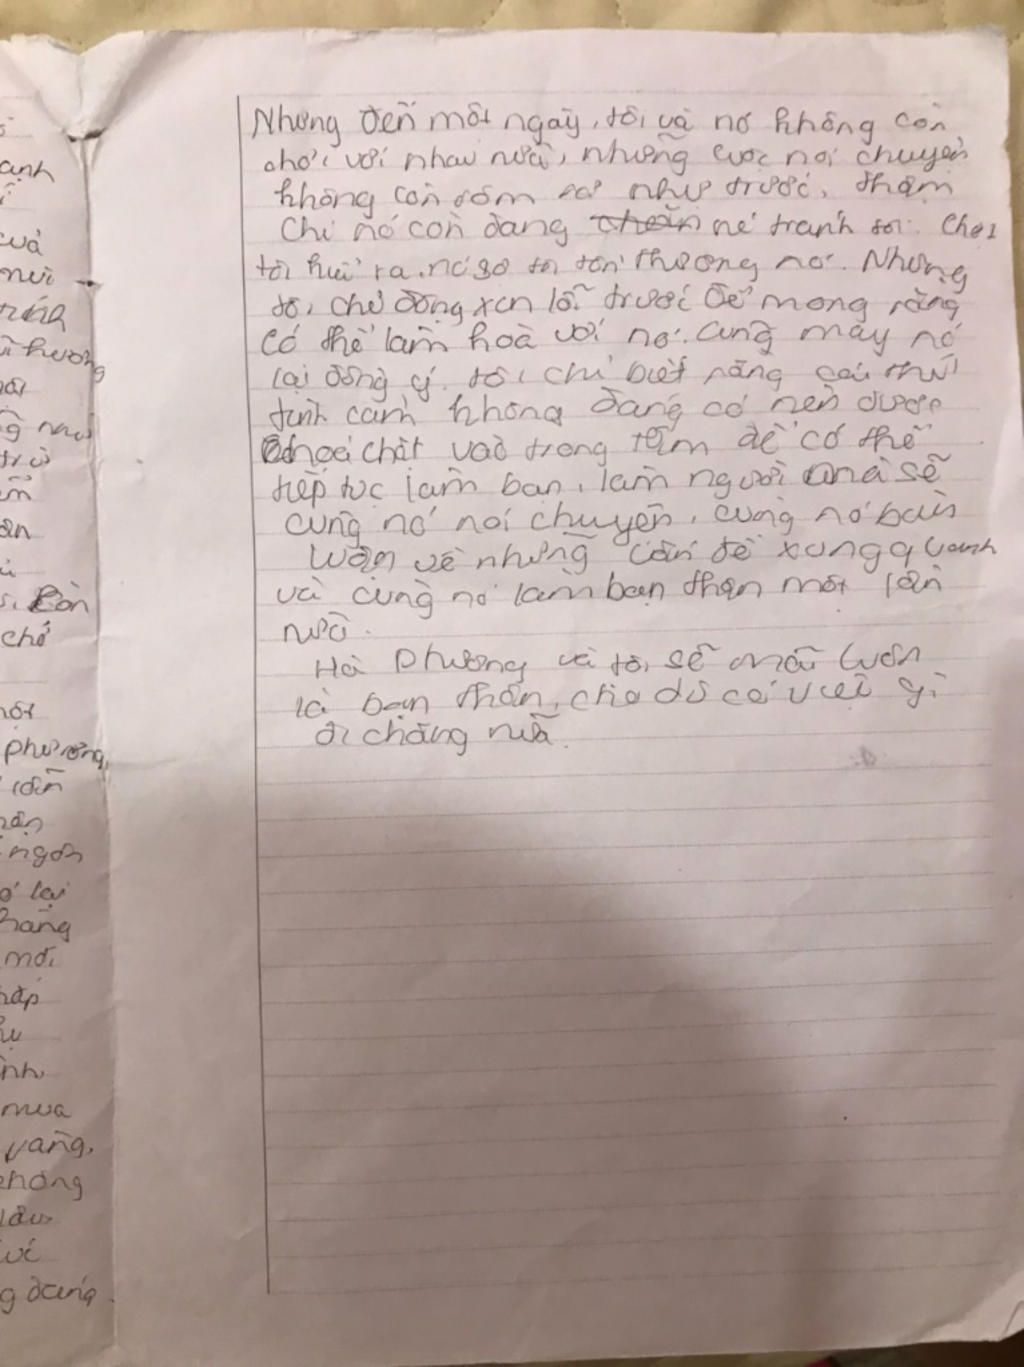 ạnh
quả
hương
g như
trù
ản
Còn
chớ
một
phương,
lần
ngon
ó lại
hàng
mới
hấp
ình
mua
vàng,
không
lâu
với
g đang.
Nhưng đến một ngày, tôi và nó không còn
chơi với nhau nữa, những cuộc nói chuyện
không còn rôm rả như trước, thậm
chí nó còn đang né tránh tôi. Chơi
tôi huỷ ra, nó sợ tôi tổn thương nó. Nhưng
tôi chủ động xin lỗi trước để mong rằng
có thể làm hoà với nó. Cũng may nó
lại đồng ý. tôi chỉ biết rằng cái thứ
tình cảm không đáng có nên được
chôn chặt vào trong tim để có thể
tiếp tục làm bạn, làm người mà sẽ
cùng nó nói chuyện, cùng nó bàn
luận về những vấn đề xung quanh
và cùng nó làm bạn thân một lần
nữa.
Hà Phương và tôi sẽ mãi luôn
là bạn thân, cho dù có việc gì
đi chăng nữa.